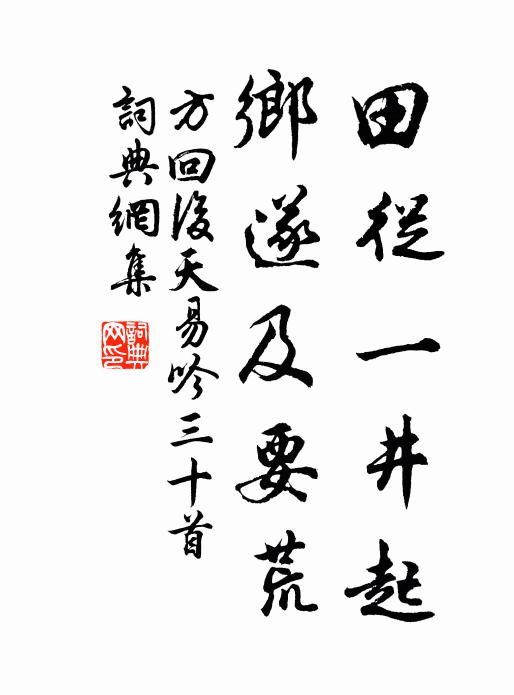 田從一井起
鄉遂及要荒
方回後天易吟三十首
詞典網集
詞典网印